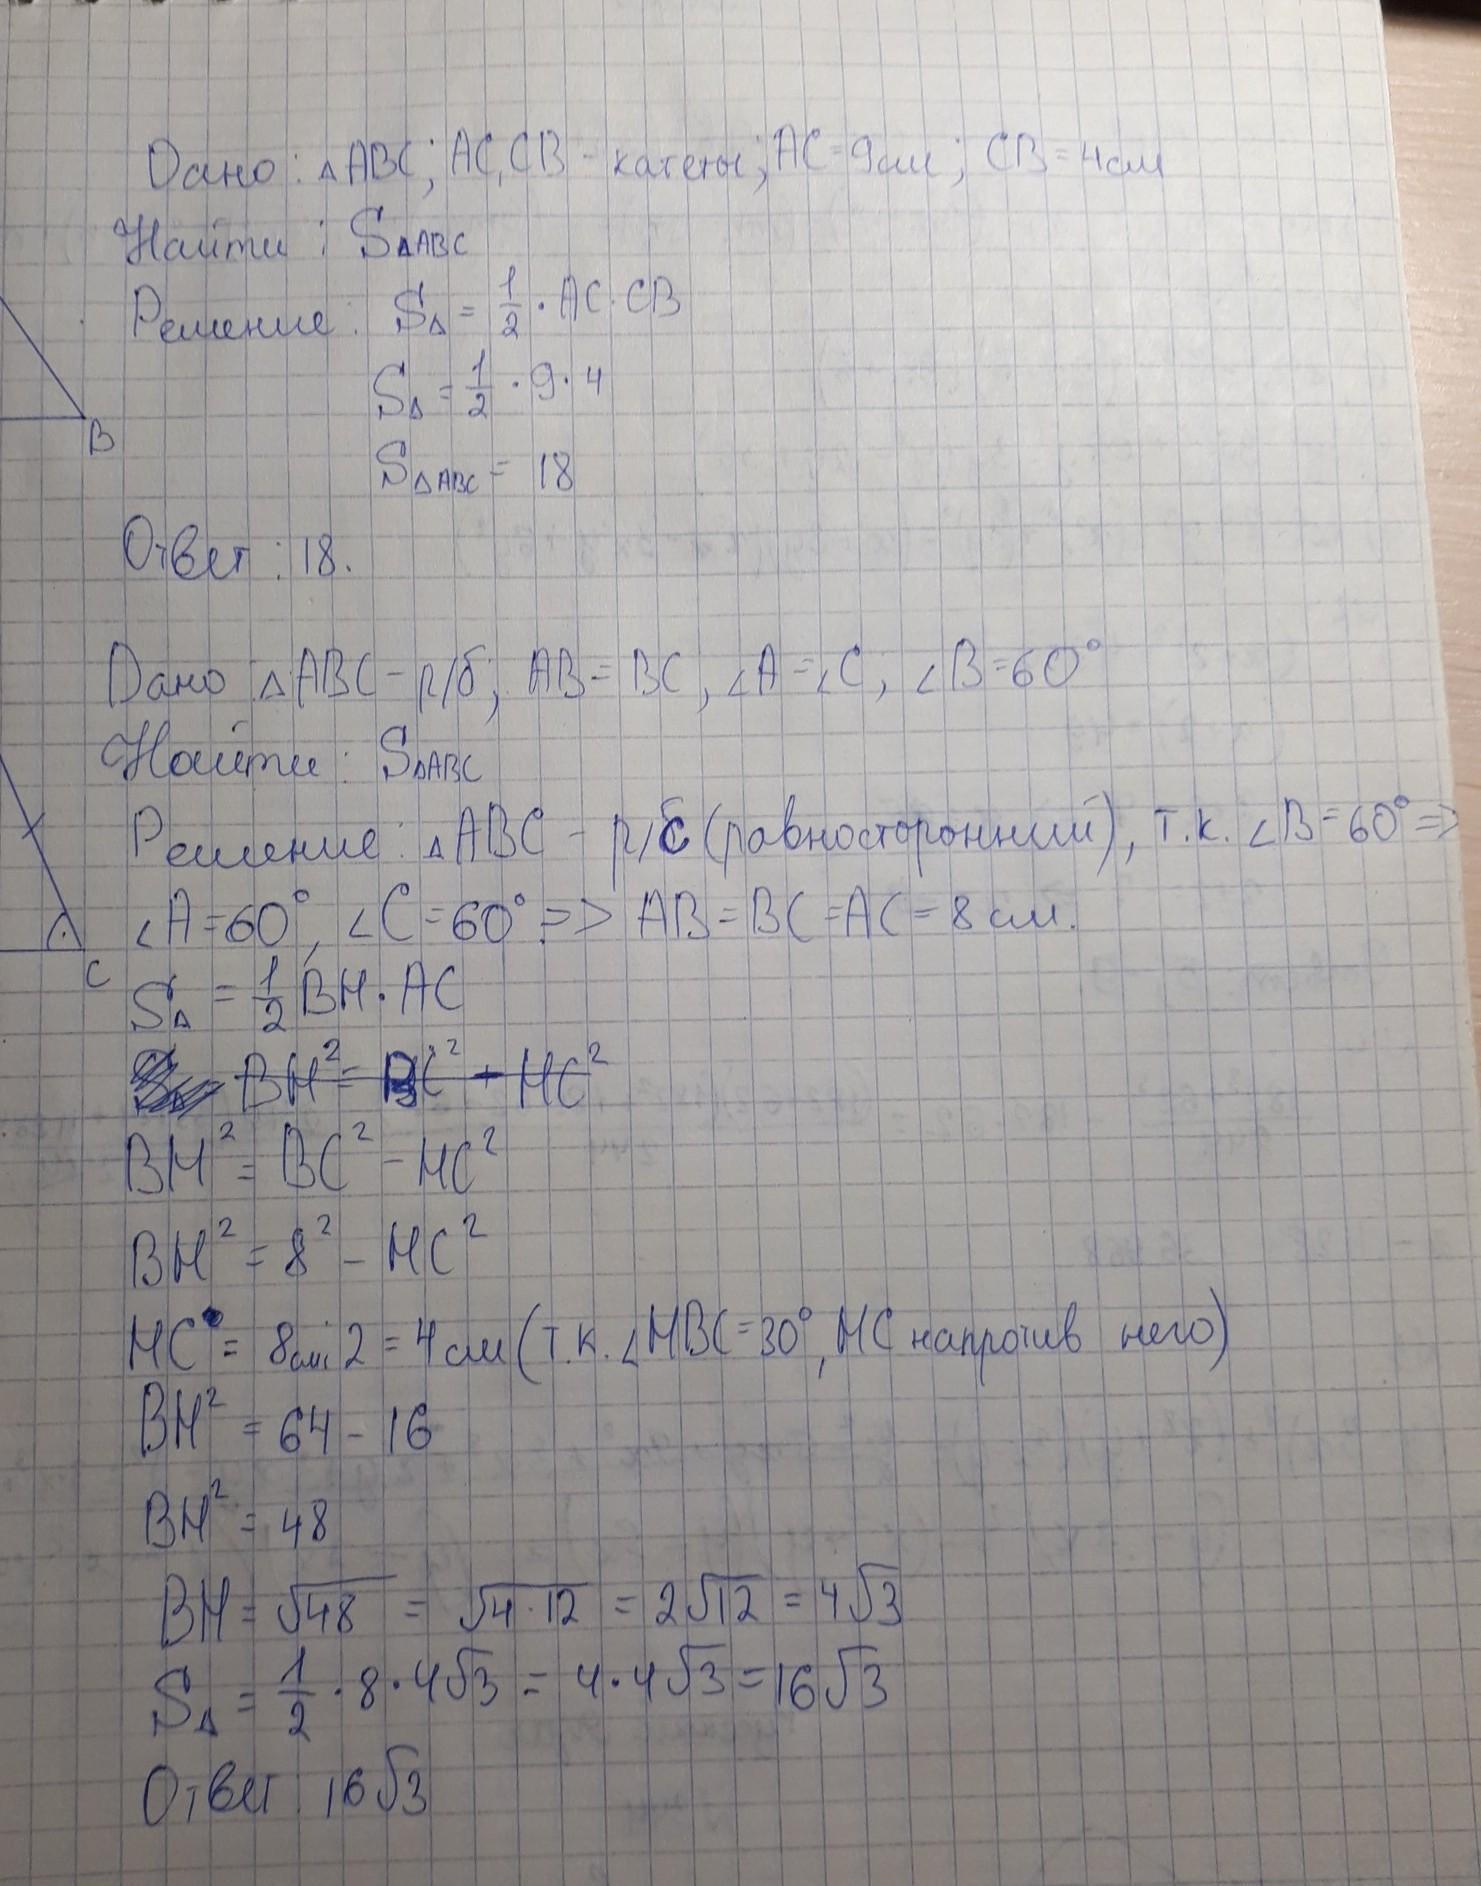 Дано: △ABC; AC, CB - катеты; AC = 9см; CB = 4см
Найти: S△ABC
Решение: S△ = 1/2 · AC · CB
S△ = 1/2 · 9 · 4
B
S△ABC = 18
Ответ: 18.
Дано △ABC - р/б; AB = BC, ∠A = ∠C; ∠B = 60°
Найти: S△ABC
Решение: △ABC - р/с (равносторонний), т.к. ∠B = 60° =>
∠A = 60°, ∠C = 60° => AB = BC = AC = 8 см.
C
S△ = 1/2 BH · AC
BH² = BC² - HC²
BH² = BC² - HC²
BH² = 8² - HC²
HC = 8см : 2 = 4 см (т.к. ∠HBC = 30°, HC напротив него)
BH² = 64 - 16
BH² = 48
BH = √48 = √4·12 = 2√12 = 4√3
S△ = 1/2 · 8 · 4√3 = 4 · 4√3 = 16√3
Ответ: 16√3